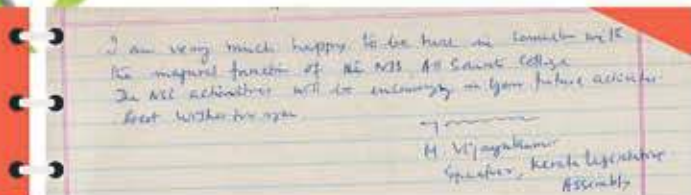 I am very much happy to be here in connection with
the inaugural function of the NSS, All Saints College
The NSS activities will be encouraging in your future activities.
Best wishes for
M. Vijayakumar
Speaker, Kerala Legislative
Assembly